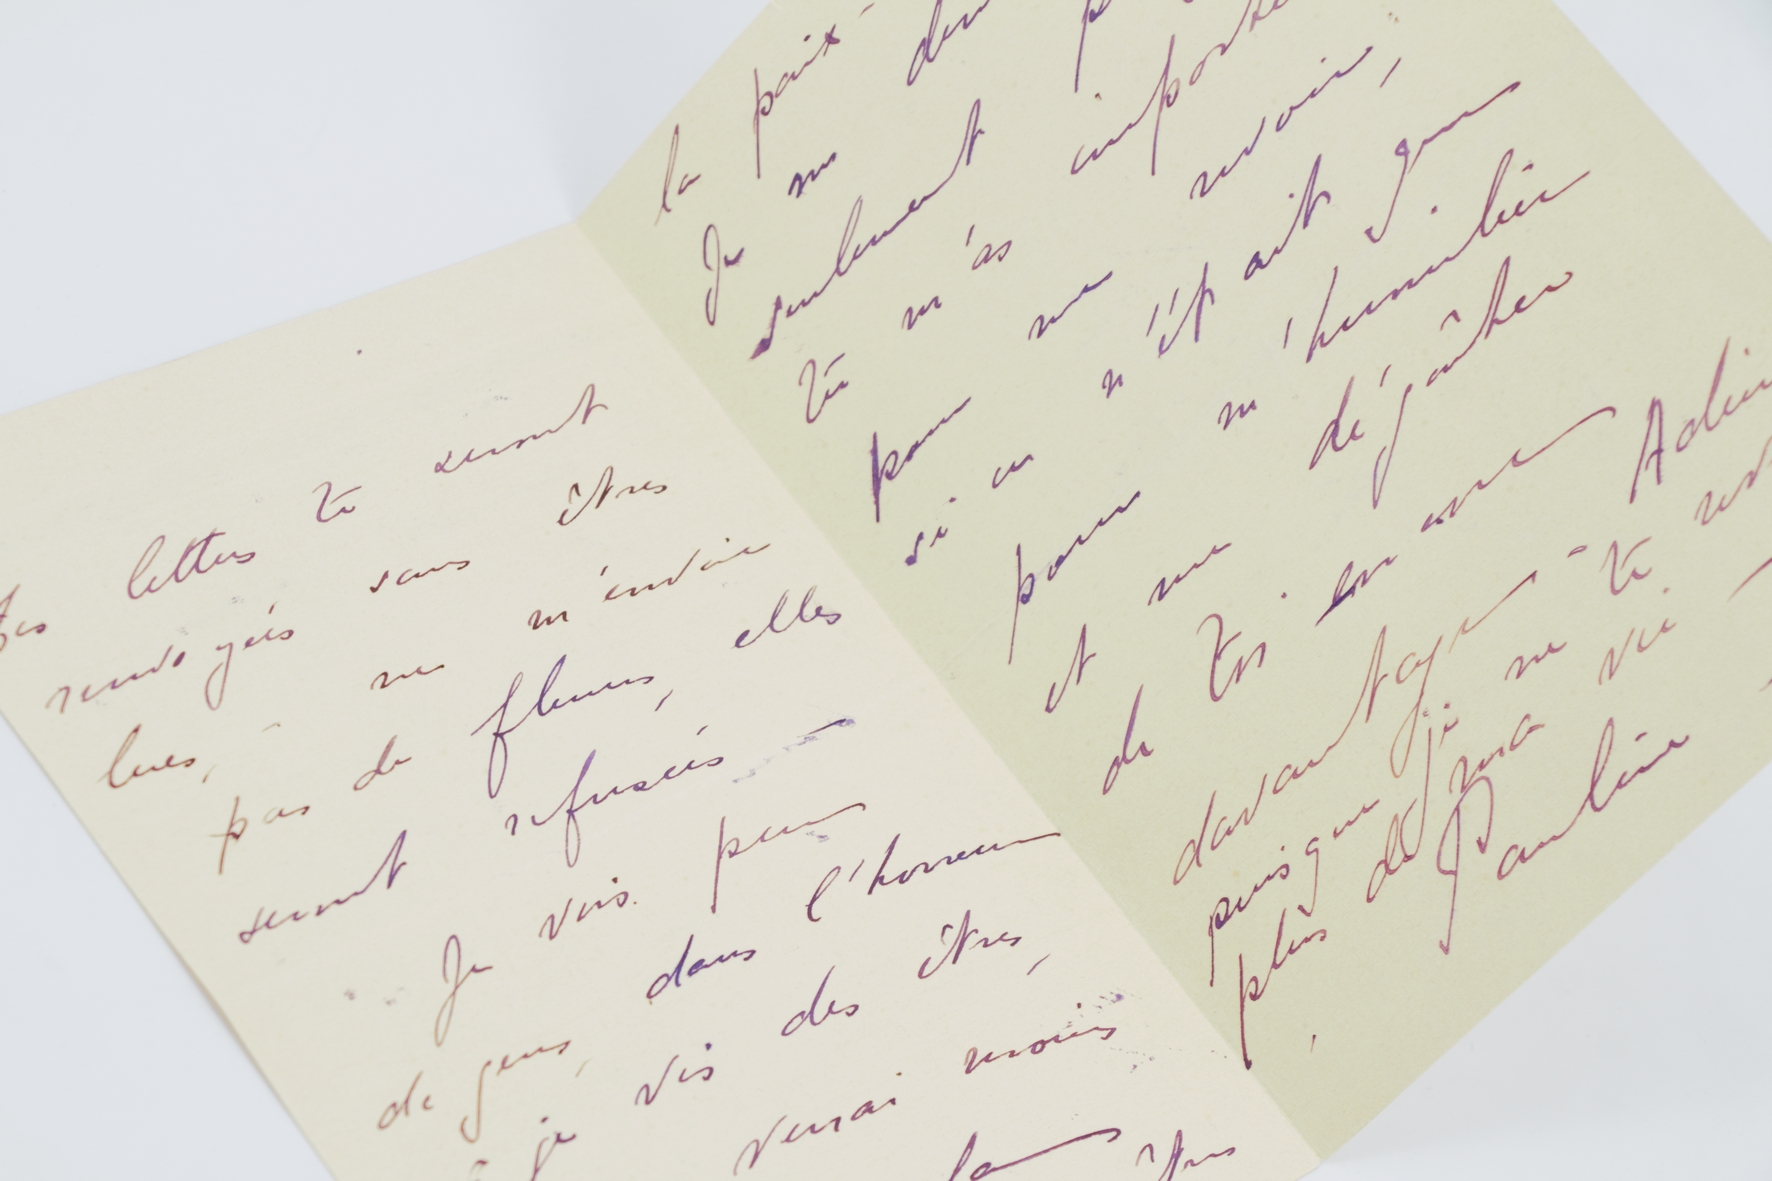 tes lettres te seront
renvoyées sans êtres
lues, - ne m'envoie
pas de fleurs, elles
seront refusées -
Je vois peu
de gens, dans l'horreur
je vis des êtres,
verrai moins
la êtres
la paix -
Je ne
seulement
tu m'as importé
pour me revoir,
si on n'était gens
pour m'humilier
et me dégoûter
de toi. en ome
davantage - Adieu
puisque je ne te
plus de ma vie
Pauline